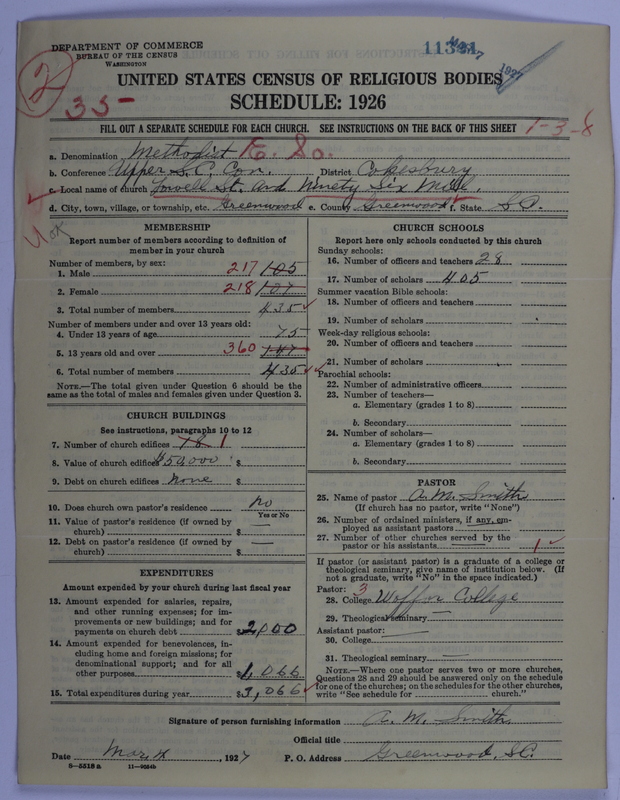 DEPARTMENT OF COMMERCE
BUREAU OF THE CENSUS
WASHINGTON
11391
2
35-
UNITED STATES CENSUS OF RELIGIOUS BODIES
SCHEDULE: 1926
FILL OUT A SEPARATE SCHEDULE FOR EACH CHURCH. SEE INSTRUCTIONS ON THE BACK OF THIS SHEET
1-3-8
a. Denomination Methodist E. So.
b. Conference Upper S.C. Con. District Cokesbury
c. Local name of church Lowell St. and Ninety Six Mill.
d. City, town, village, or township, etc. Greenwood e. County Greenwood f. State S.C.
OK
MEMBERSHIP
Report number of members according to definition of member in your church
Number of members, by sex:
1. Male 217 105
2. Female 218 107
3. Total number of members 435
Number of members under and over 13 years old:
4. Under 13 years of age 75
5. 13 years old and over 360 147
6. Total number of members 435
NOTE.—The total given under Question 6 should be the same as the total of males and females given under Question 3.
CHURCH BUILDINGS
See instructions, paragraphs 10 to 12
7. Number of church edifices 1
8. Value of church edifices $50,000 $
9. Debt on church edifices None $
10. Does church own pastor's residence No
Yes or No
11. Value of pastor's residence (if owned by church) $ —
12. Debt on pastor's residence (if owned by church) $ —
EXPENDITURES
Amount expended by your church during last fiscal year
13. Amount expended for salaries, repairs, and other running expenses; for improvements or new buildings; and for payments on church debt $2,000
14. Amount expended for benevolences, including home and foreign missions; for denominational support; and for all other purposes $1,066
15. Total expenditures during year $3,066
CHURCH SCHOOLS
Report here only schools conducted by this church
Sunday schools:
16. Number of officers and teachers 28
17. Number of scholars 405
Summer vacation Bible schools:
18. Number of officers and teachers
19. Number of scholars
Week-day religious schools:
20. Number of officers and teachers
21. Number of scholars
Parochial schools:
22. Number of administrative officers
23. Number of teachers—
a. Elementary (grades 1 to 8)
b. Secondary
24. Number of scholars—
a. Elementary (grades 1 to 8)
b. Secondary
PASTOR
25. Name of pastor A. M. Smith
(If church has no pastor, write "None")
26. Number of ordained ministers, if any, employed as assistant pastors
27. Number of other churches served by the pastor or his assistants 1
If pastor (or assistant pastor) is a graduate of a college or theological seminary, give name of institution below. (If not a graduate, write "No" in the space indicated.)
Pastor: 3
28. College Woffor College
29. Theological seminary —
Assistant pastor: —
30. College
31. Theological seminary —
NOTE.—Where one pastor serves two or more churches, Questions 28 and 29 should be answered only on the schedule for one of the churches; on the schedules for the other churches, write "See schedule for church."
Signature of person furnishing information A. M. Smith
Official title
Date Mar, 1927 P. O. Address Greenwood, S.C.
8-5518 a 11-9054b